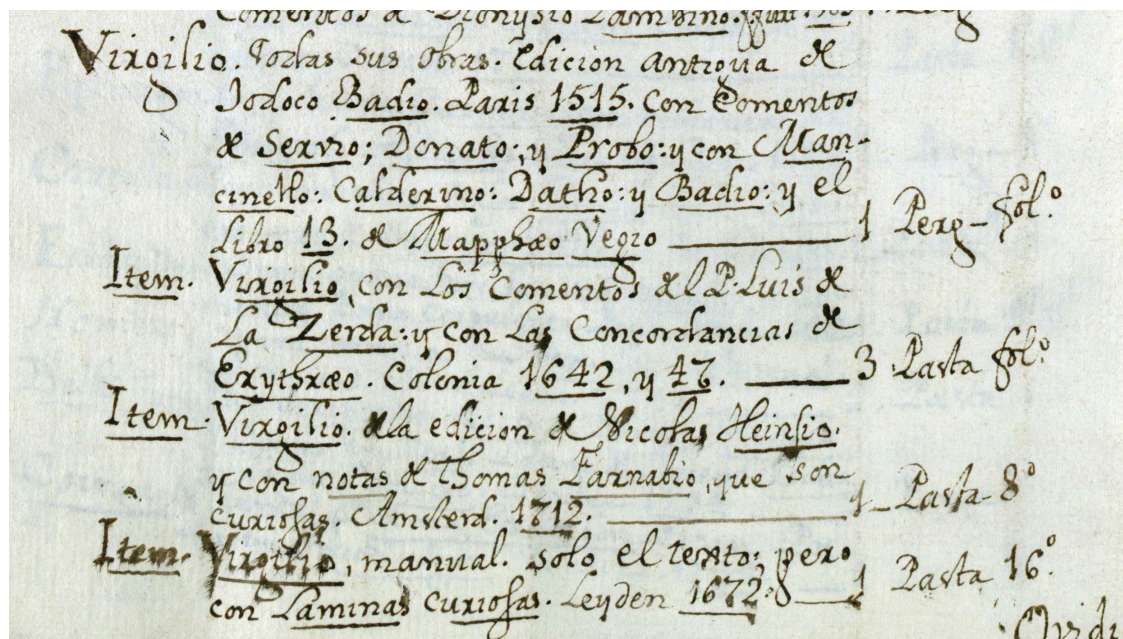 Comentos de Dionysio Lambino.
Virgilio. Todas sus obras. Edicion antigua de
Jodoco Badio. Paris 1515. con Comentos
de Servio; Donato:, y Probo: y con Man-
cinello: Calderino: Datho: y Badio: y el
Libro 13. de Mapphæo Vegio — 1 Perg– fol.º
Item. Virgilio, con Los Comentos del P. Luis de
La Zerda: y con Las Concordancias de
Erythræo. Colonia 1642, y 47. — 3 Pasta fol.º
Item. Virgilio. de la edicion de Nicolas Heinsio.
y con notas de Thomas Farnabio, que son
curiosas. Amsterd. 1712. — 1 Pasta 8º
Item. Virgilio, manual. solo el texto; pero
con Laminas curiosas. Leyden 1672. — 1 Pasta 16º.